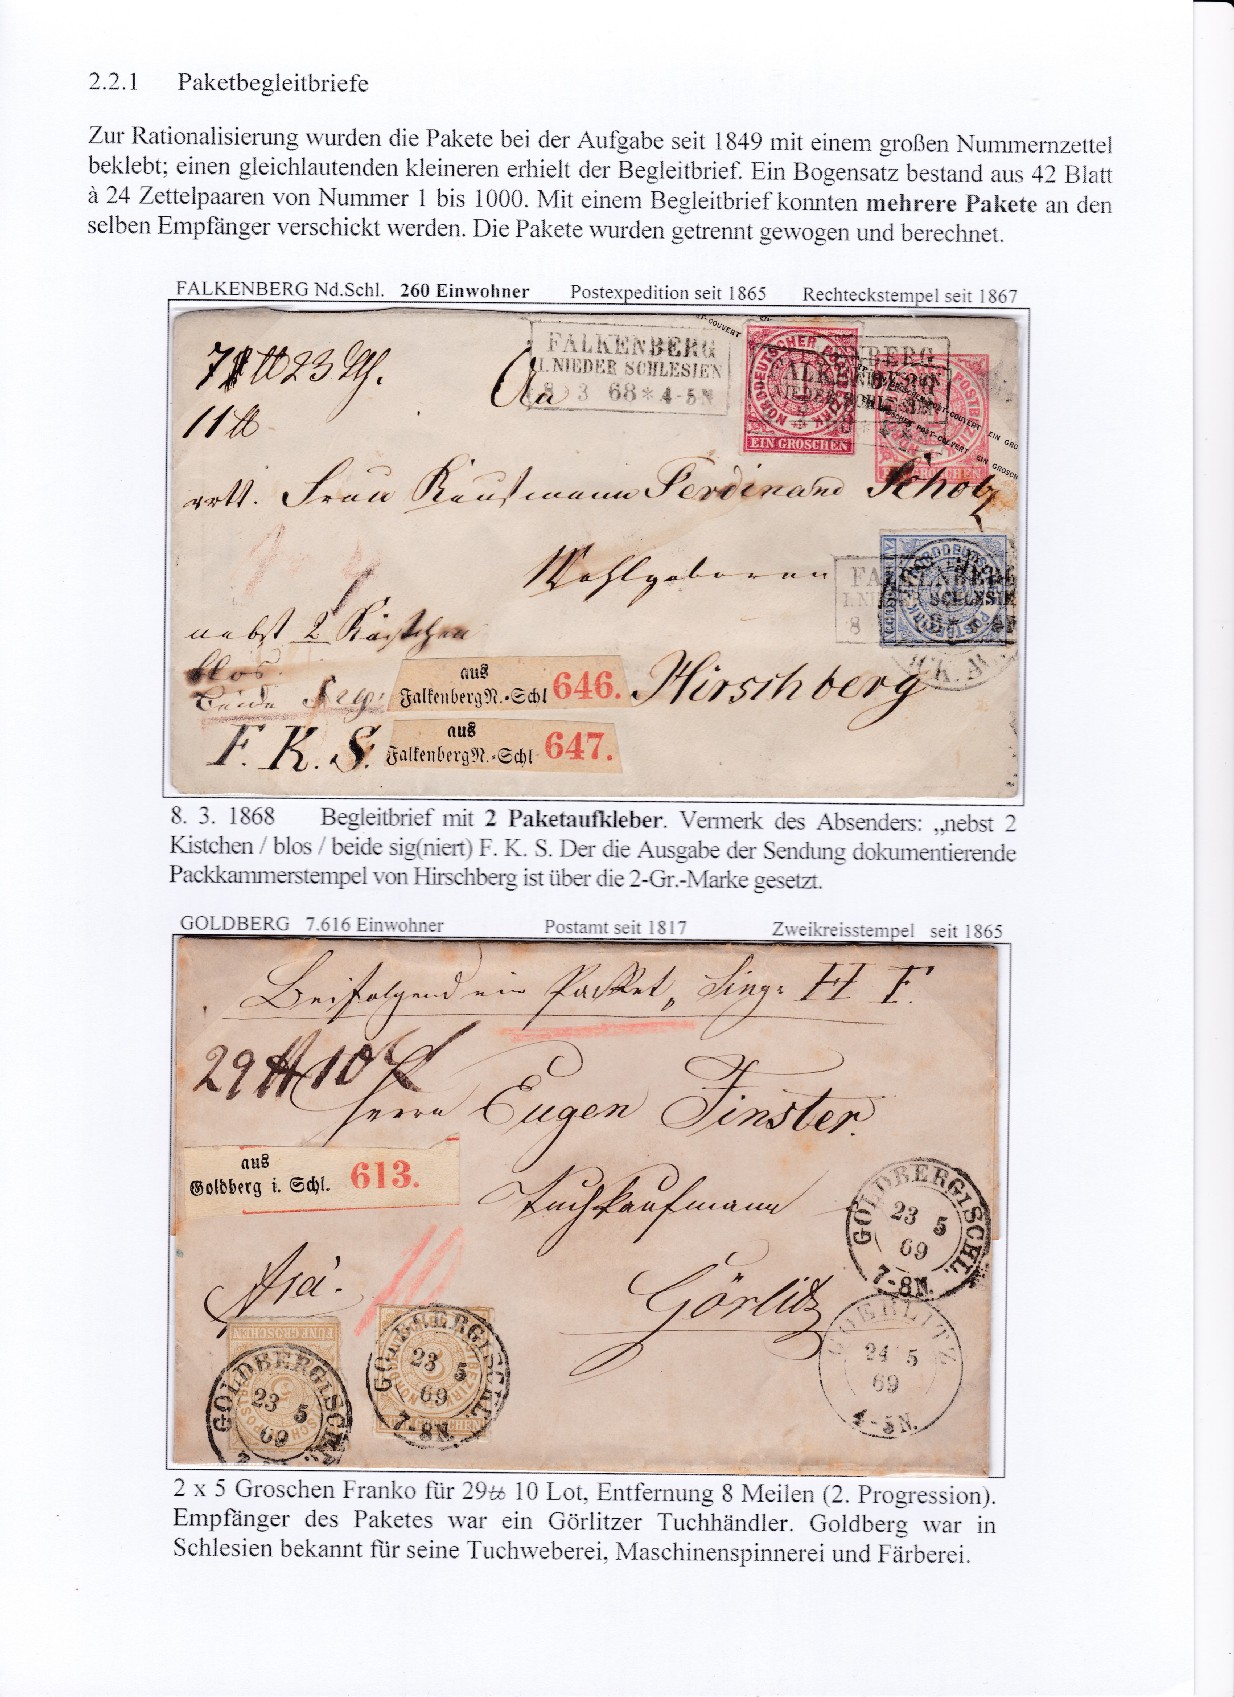 2.2.1 Paketbegleitbriefe
Zur Rationalisierung wurden die Pakete bei der Aufgabe seit 1849 mit einem großen Nummernzettel
beklebt; einen gleichlautenden kleineren erhielt der Begleitbrief. Ein Bogensatz bestand aus 42 Blatt
à 24 Zettelpaaren von Nummer 1 bis 1000. Mit einem Begleitbrief konnten mehrere Pakete an den
selben Empfänger verschickt werden. Die Pakete wurden getrennt gewogen und berechnet.
FALKENBERG Nd.Schl. 260 Einwohner Postexpedition seit 1865 Rechteckstempel seit 1867
FALKENBERG
I. NIEDER SCHLESIEN
8 3 68 * 4-5N
An
11 ℔
EIN GROSCHEN
Frau Kaufmann Ferdinand Scholz
Wohlgeboren
nebst 2 Kistchen
blos
beide sig:
F. K. S.
aus
Falkenberg N.-Schl 646.
aus
Falkenberg N.-Schl 647.
Hirschberg
8. 3. 1868 Begleitbrief mit 2 Paketaufkleber. Vermerk des Absenders: „nebst 2
Kistchen / blos / beide sig(niert) F. K. S. Der die Ausgabe der Sendung dokumentierende
Packkammerstempel von Hirschberg ist über die 2-Gr.-Marke gesetzt.
GOLDBERG 7.616 Einwohner Postamt seit 1817 Zweikreisstempel seit 1865
Beifolgend ein Packet, Sing: H F.
29 ℔ 10
Herrn Eugen Finster.
aus
Goldberg i. Schl. 613.
Tuchkaufmann
Görlitz
GOLDBERG I SCHL.
23 5
69
7-8N.
GOERLITZ
24 5
69
4-5N.
FÜNF GROSCHEN
GOLDBERG I SCHL.
23 5
69
GOLDBERG I SCHL.
23 5
69
7-8N.
2 x 5 Groschen Franko für 29 ℔ 10 Lot, Entfernung 8 Meilen (2. Progression).
Empfänger des Paketes war ein Görlitzer Tuchhändler. Goldberg war in
Schlesien bekannt für seine Tuchweberei, Maschinenspinnerei und Färberei.